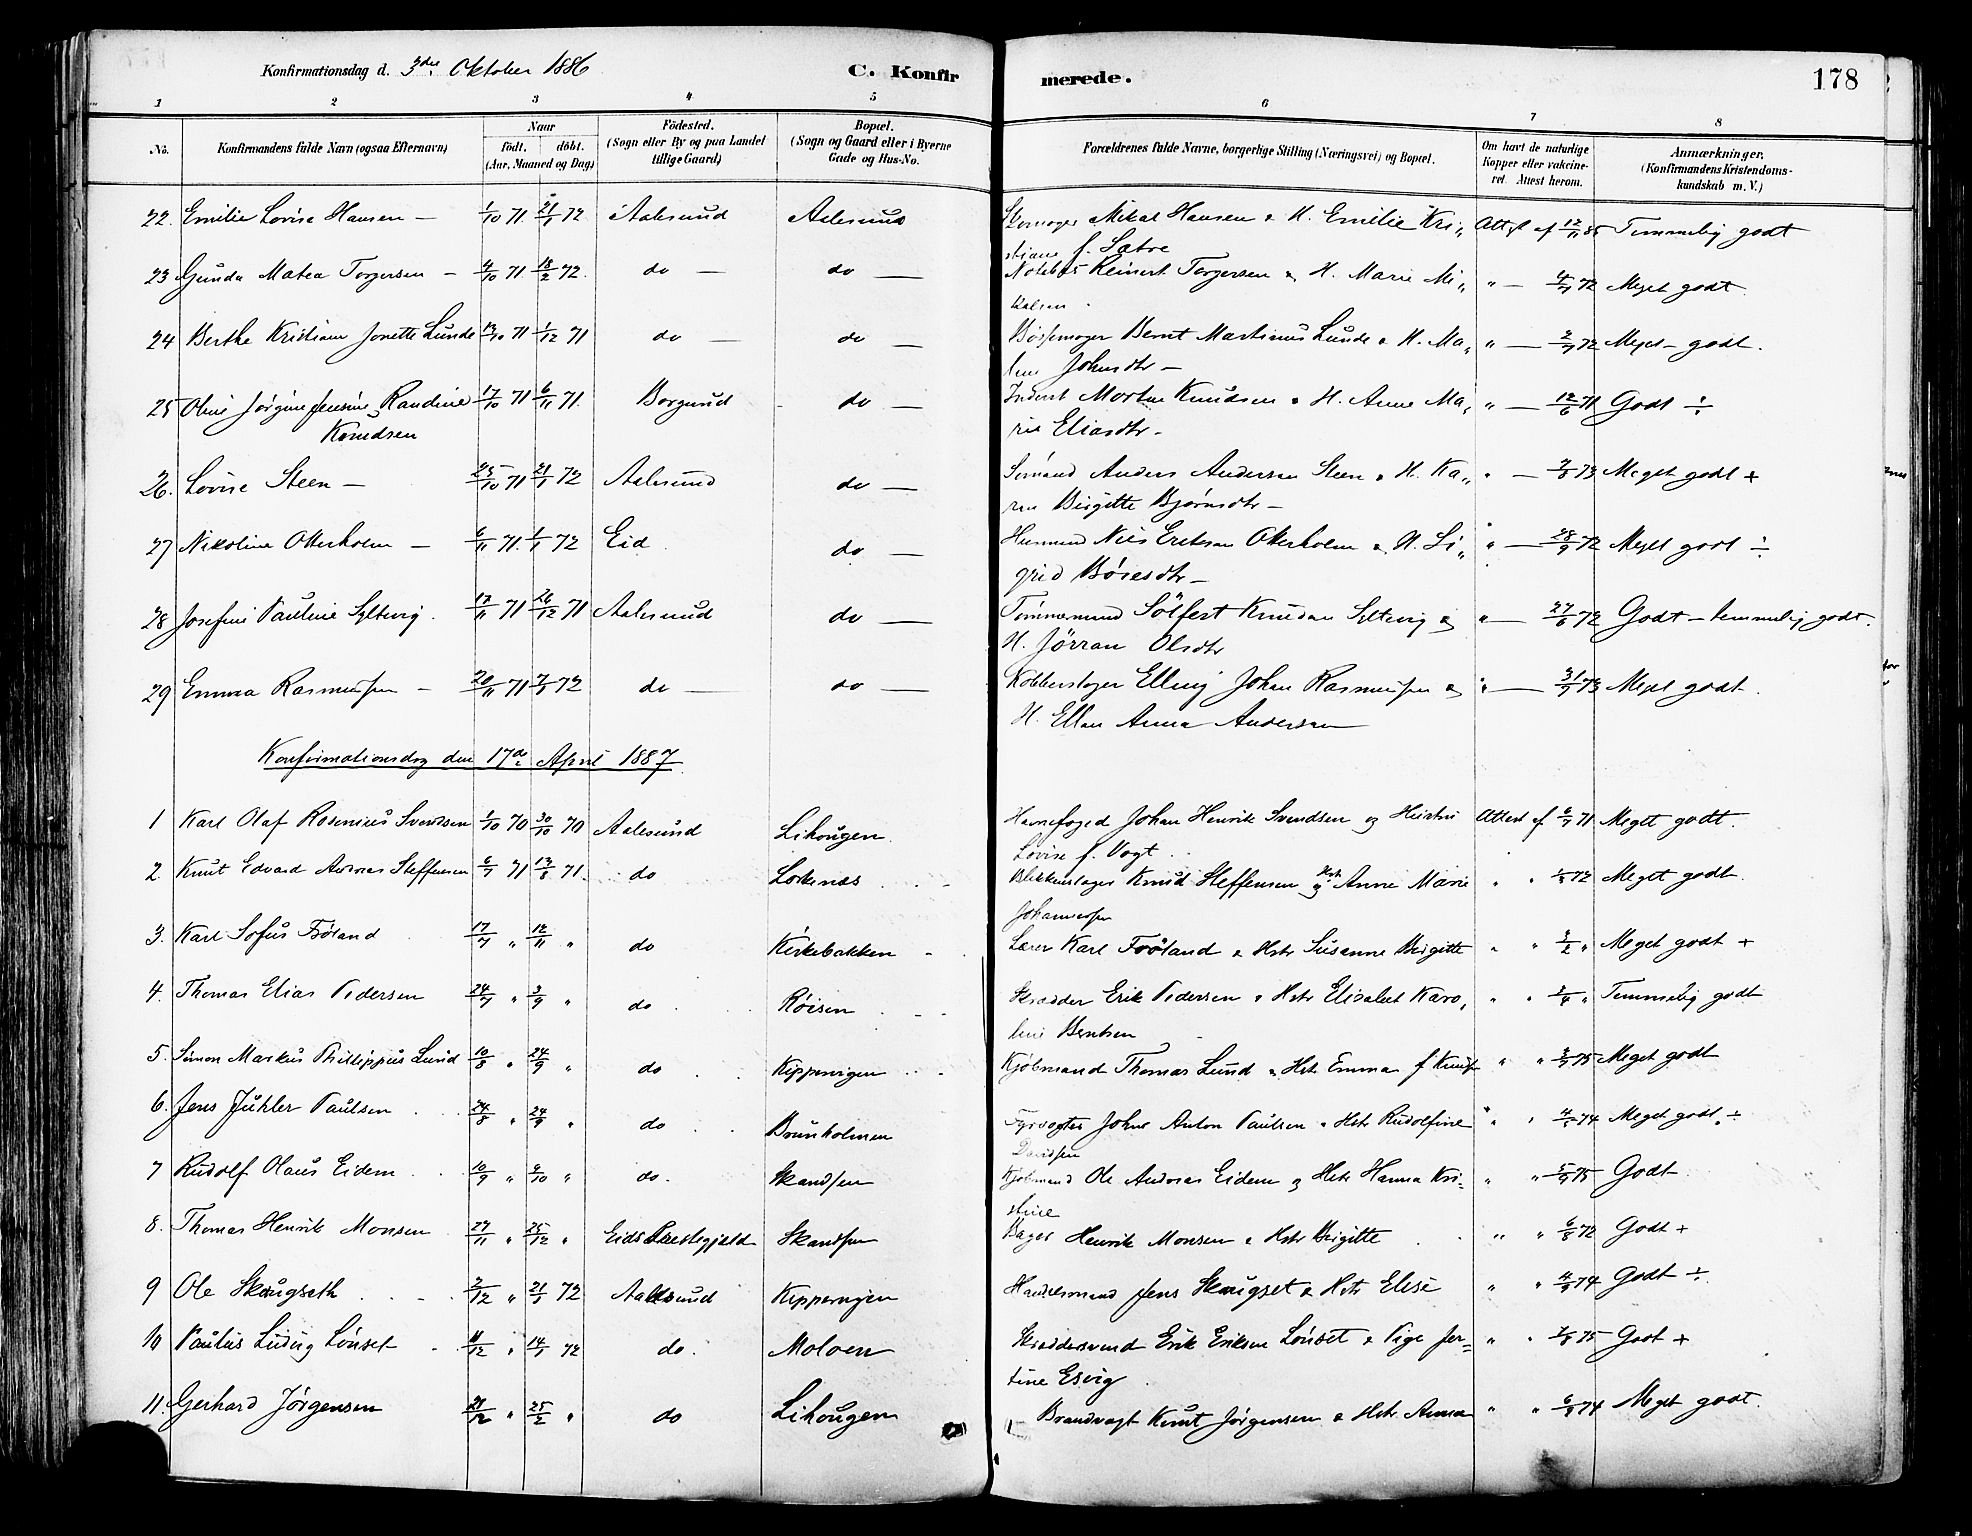 Konfirmationsdag d. 3die Oktober 1886. C. Konfirmerede. 178
1 2 3 4 5 6 7 8
No. Konfirmandens fulde Navn (ogsaa Efternavn) Naar födt. döbt. (Aar, Maaned og Dag) Födested. (Sogn eller By og paa Landet tillige Gaard) Bopæl. (Sogn og Gaard eller i Byerne Gade og Hus-No. Forældrenes fulde Navne, borgerlige Stilling (Næringsvei) og Bopæl. Om havt de naturlige Kopper eller vakcineret. Attest herom. Anmærkninger, (Konfirmandens Kristendomskundskab m. V.)
22. Emilie Lovise Hansen — 1/10 71 21/1 72 Aalesund Aalesund Mikal Hansen & H. Emilie Kri„ Attest af 12/11 85 Temmelig godt
stiane f. Sætre
23 Gunda Matea Torgersen — 4/10 71 18/2 72. do — do — Reinert Torgersen & H. Marie Mi„ „ — 4/7 72 Meget godt.
kalsen.
24 Berthe Kristiane Jonette Lunde 13/10 71 1/12 71 do — do — Bøssemager Bernt Martinus Lunde & H. Ma„ „ — 2/7 72 Meget godt.
lene Johnsdtr —
25 Oline Jørgine Jensine Randine 17/10 71 6/11 71. Borgund do — Inderst Morten Knudsen & H. Anne Ma„ „ — 12/6 71 Godt ÷
Knudsen rie Eliasdtr —
26. Lovise Steen — 25/10 71 21/1 72 Aalesund do — Sømand Anders Andersen Steen & H. Ka„ „ — 7/8 73 Meget godt +
ren Birgitte Bjørnsdtr —
27 Nikoline Otterholm — 6/11 71. 1/1 72 Eid do — Husmand Nils Eriksen Otterholm & H. Si„ „ — 28/9 72 Meget godt ÷
grid Børesdtr —
28 Josefine Pauline Syltevig. 17/11 71 26/12 71 Aalesund do — Tømmermand Sölfest Knudsen Syltevig & „ — 27/6 72 Godt — temmelig godt.
H. Jørran Olsdtr
29 Emma Rasmussen — 20/11 71 7/1 72 do — do — Kobberslager Elling Johan Rasmussen & „ — 31/7 73 Meget godt.
H. Ellen Anna Andersen
Konfirmationsdag den 17de April 1887.
1 Karl Olaf Rosenius Svendsen 1/10 70 30/10 70 Aalesund Lihougen. Havnefoged Johan Henrik Svendsen og Hustru Attest af 6/7 71 Meget godt.
Lovise f. Vogt.
2. Knut Edvard Andreas Steffensen 6/7 71 13/8 71. do Lorkenæs Blikkenslager Knud Steffensen og Hstr Anne Marie „ „ 72 Meget godt.
Johannessen
3. Karl Sofus Frøland 17/7 „ 12/11 „ do Kirkebakken Lærer Karl Frøland & Hstr Susanne Birgitte „ „ Meget godt +
4. Thomas Elias Pedersen 24/7 „ 3/9 „ do Røisen Skrædder Erik Pedersen & Hstr Elisabet Karo„ „ „ Temmelig godt
line Berntsen
5. Simon Markus Phillippus Lund 10/8 „ 24/9 „ do Kippervigen Kjøbmand Thomas Lund & Hstr Emma f „ „ 75 Meget godt
6. Jens Juhler Paulsen 24/8 „ 24/9 „ do Brunholmen Fyrvogter Johns Anton Paulsen & Hstr Rudolfine „ „ 74 Meget godt ÷
Davidsen
7 Rudolf Olaus Eidem 10/9 „ 9/10 „ do. Skandsen Kjøbmand Ole Andreas Eidem og Hstr Hanna Kri- „ „ 75 Godt
stine
8. Thomas Henrik Monsen 27/11 „ 25/12 „ Eids Præstegjæld Skandsen Bager Henrik Monsen & Hstr Birgitte „ „ 6/8 72 Godt +
9 Ole Skougseth 2/12 „ 21/1 72 Aalesund Kippervigen Handelsmand Jens Skougset & Hstr Elise „ „ 4/9 74 Godt ÷
10 Paulus Ludvig Lønset 11/12 „ 14/1 72 do. Moloen Skræddersvend Erik Eriksen Lønset & Pige Jer= „ „ 75 Godt +
tine Esvig.
11. Gerhard Jørgensen 21/12 „ 25/2 „ do Lihougen Brandvagt Knut Jørgensen & Hstr Anna „ „ 6/9 74 Meget godt.